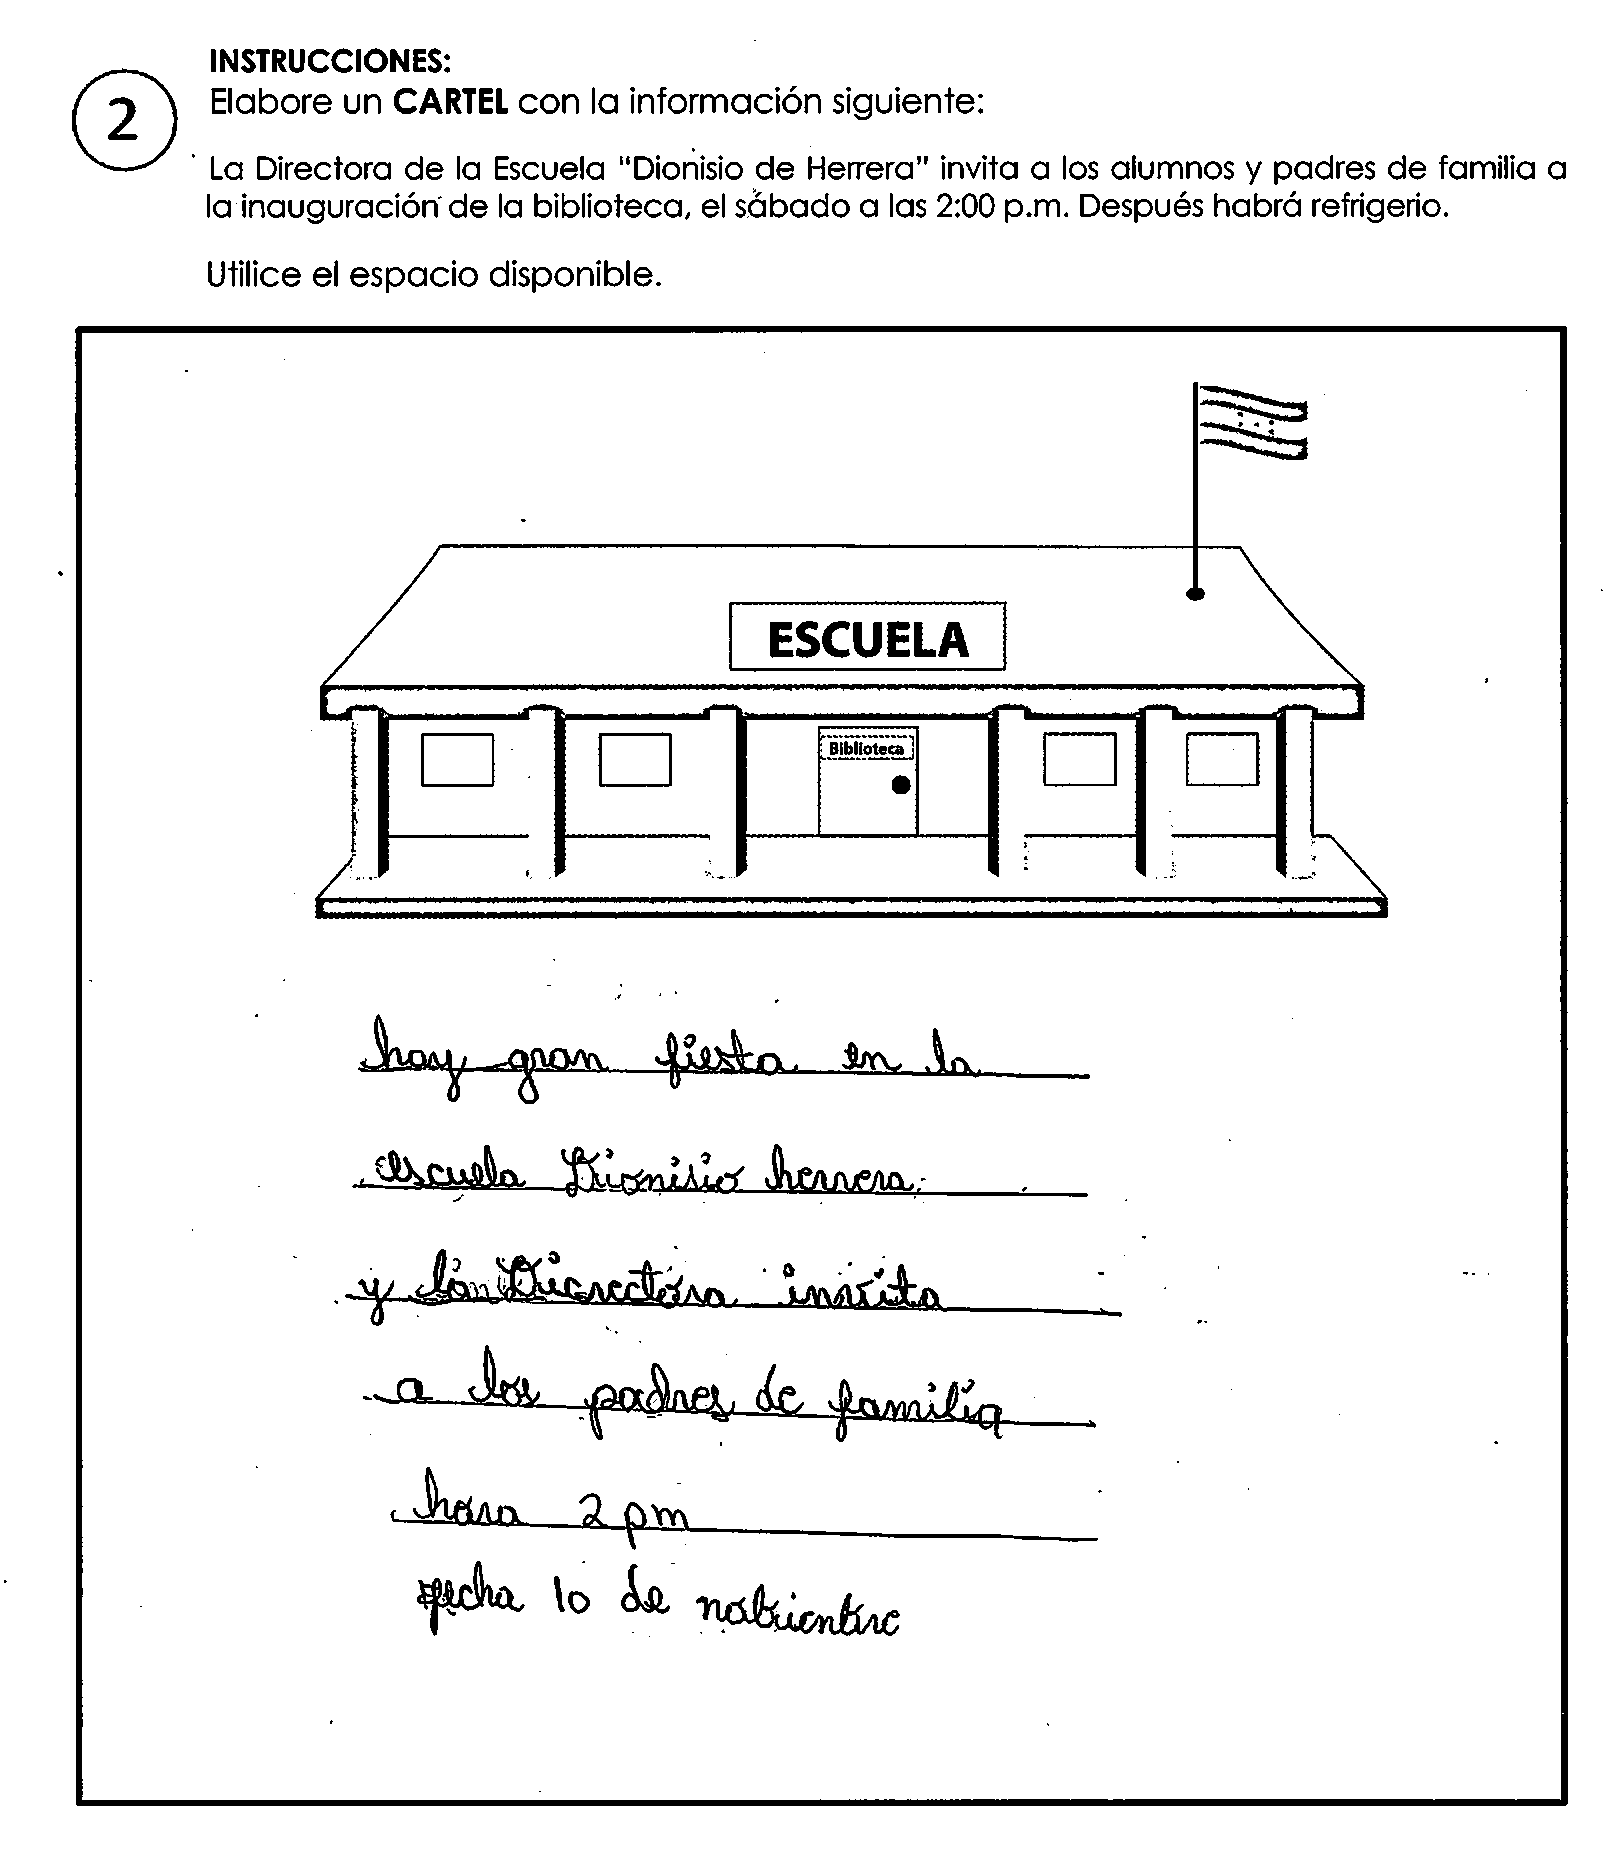 INSTRUCCIONES:
2
Elabore un CARTEL con la información siguiente:
La Directora de la Escuela "Dionisio de Herrera" invita a los alumnos y padres de familia a
la inauguración de la biblioteca, el sábado a las 2:00 p.m. Después habrá refrigerio.
Utilice el espacio disponible.
ESCUELA
Biblioteca
hay gran fiesta en la
escuela Dionisio herrera
y la Directora invita
a los padres de familia
hora 2 pm
fecha 10 de nobienbre